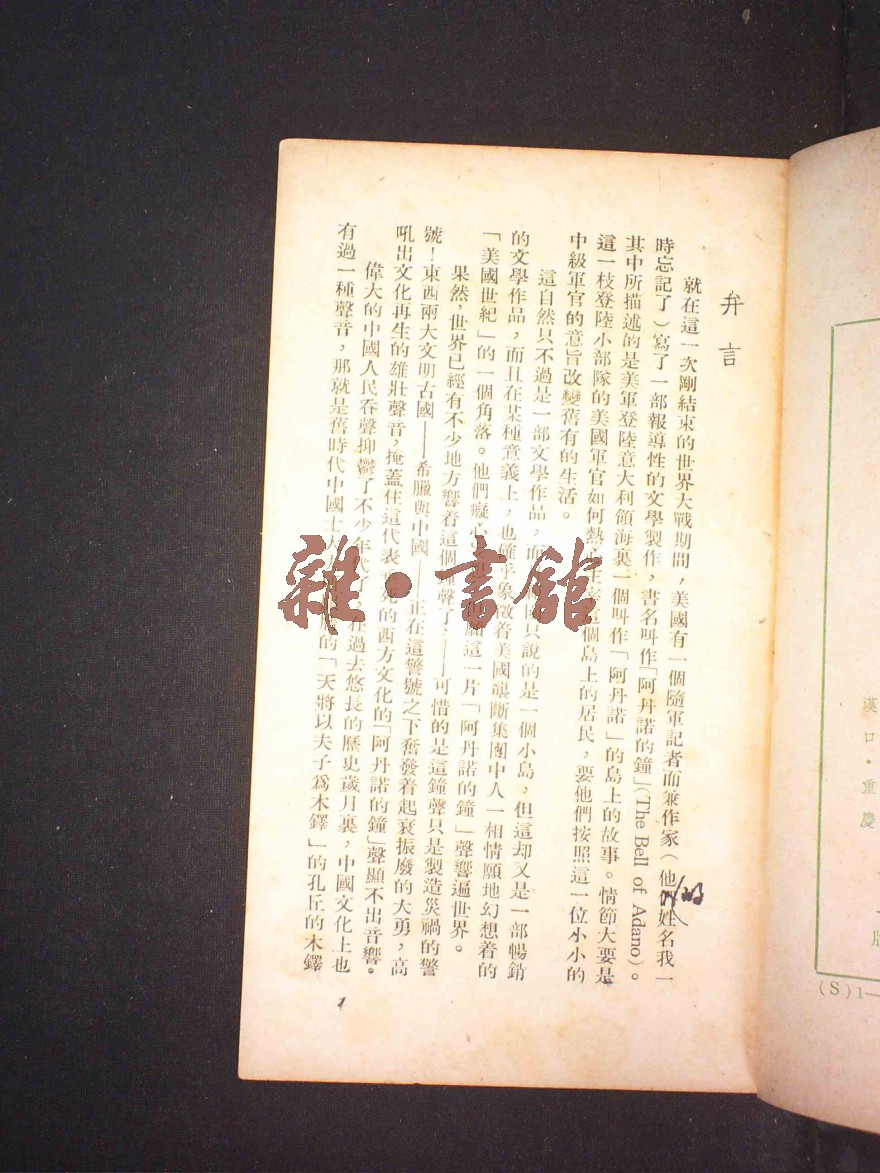 弁言
就在這一次剛結束的世界大戰期間，美國有一個隨軍記者而兼作家（他們姓名我一
的
時忘記了）寫了一部報導性的文學製作，書名叫作「阿丹諾的鐘」(The Bell of Adano)。
其中所描述的是美軍登陸意大利領海裏一個叫作「阿丹諾」的島上的故事。情節大要是
這一枝登陸小部隊的美國軍官如何熱心這個島上的居民，要他們按照這一位小小的
中級軍官的意旨改變舊有的生活。
這自然只不過是一部文學作品，而只說的是一個小島，但這却又是一部暢銷
的文學作品，而且在某種意義上，也確乎象徵着美國壟斷集團中人一相情願地幻想着的
「美國世紀」的一個角落。他們癡心這一片「阿丹諾的鐘」聲響遍世界。
果然，世界已經有不少地方響着這個鐘聲了，——可惜的是這鐘聲只是製造災禍的警
號！東西兩大文明古國——希臘與中國——正在這警號之下奮發着起衰振廢的大勇，高
吼出文化再生的雄壯聲音，掩蓋住這代表的西方文化的「阿丹諾的鐘」聲顯不出音響。
偉大的中國人民吞聲抑鬱了不少年代了，在過去悠長的歷史歲月裏，中國文化上也
有過一種聲音，那就是舊時代中國士大夫的「天將以夫子爲木鐸」的孔丘的木鐸
1
雜·書館
漢口·重慶
版
(S)1—